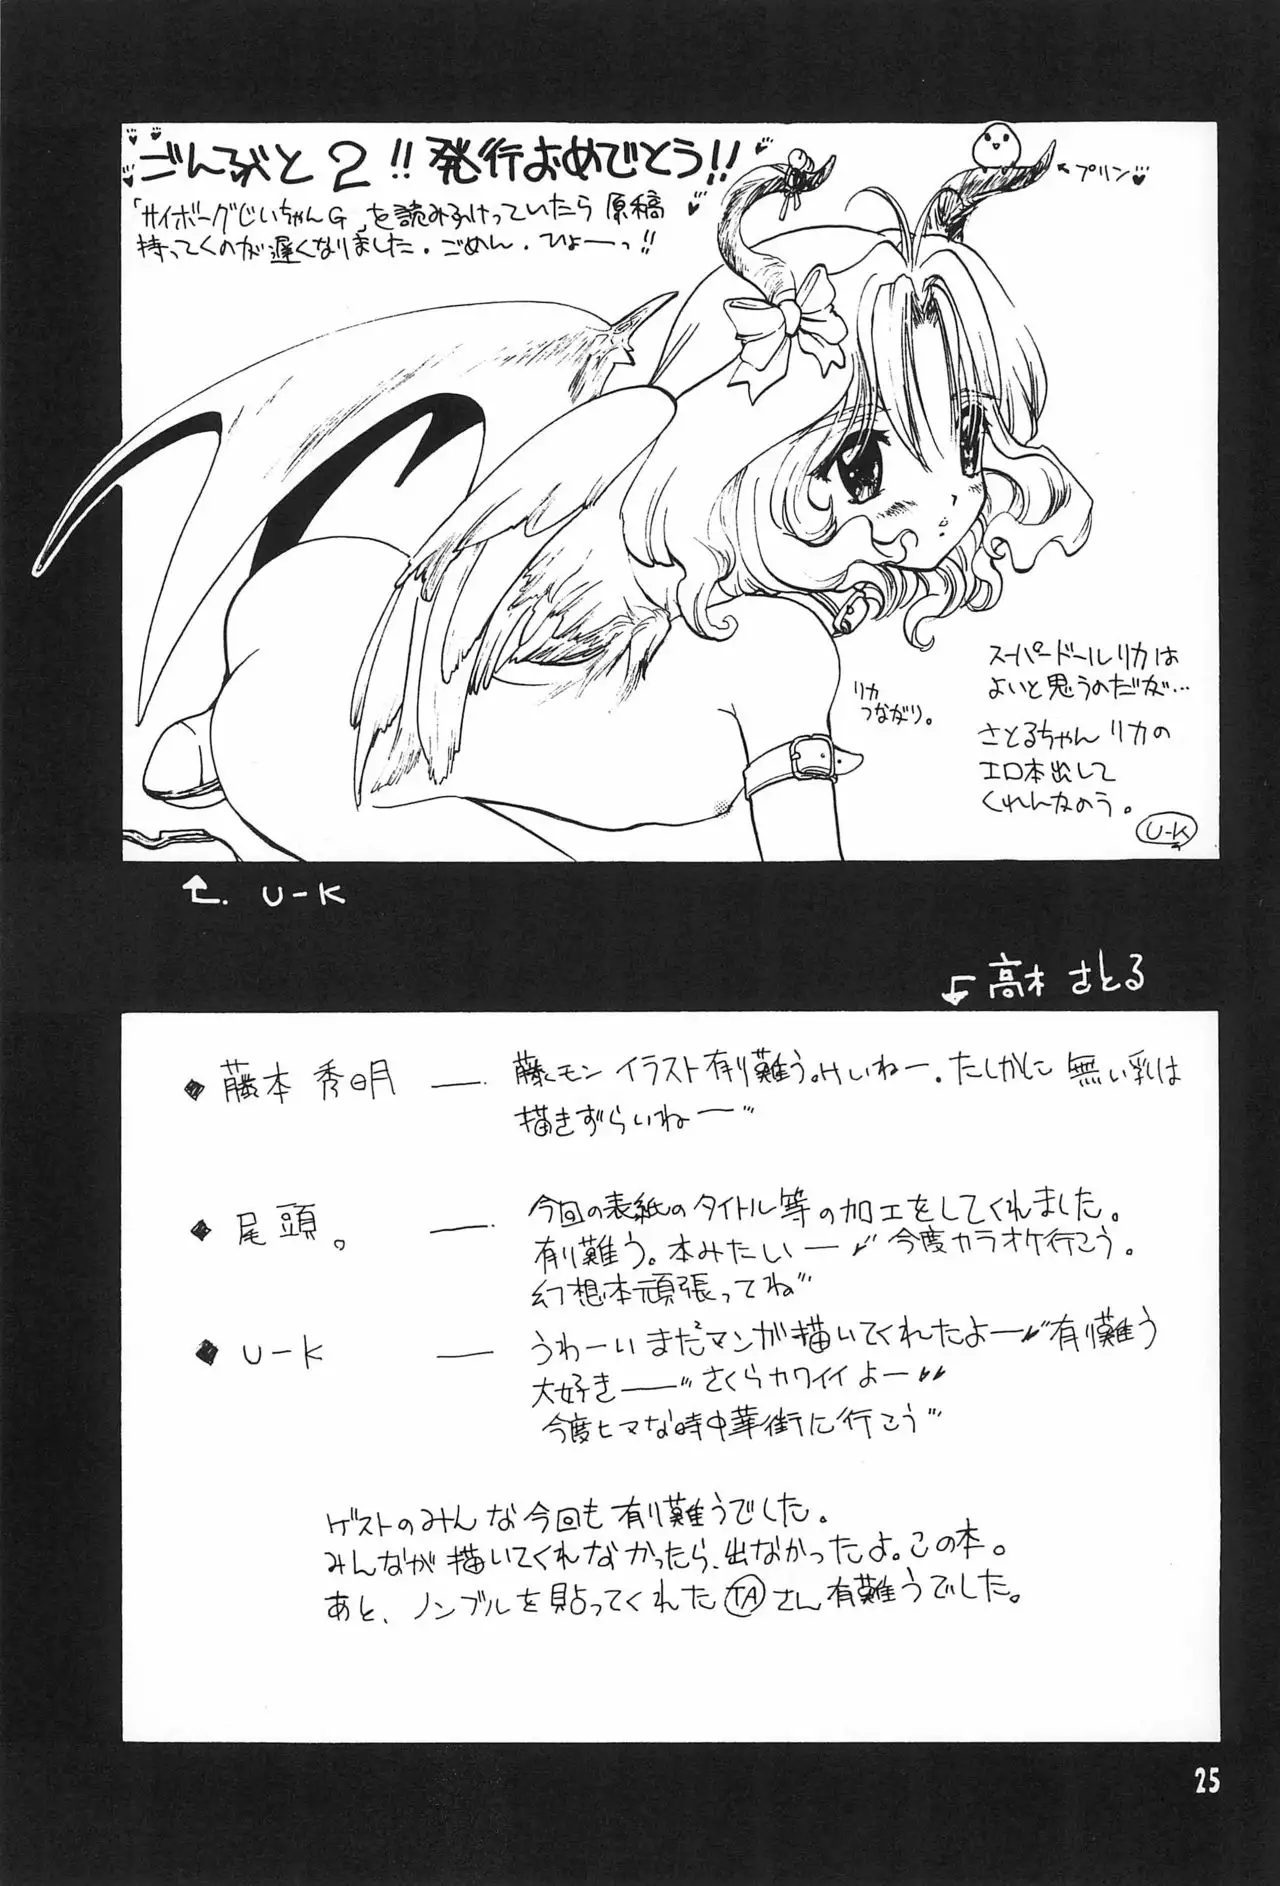 ごんぶと2!!発行おめでとう!!
「サイボーグじいちゃんG」を読みふけっていたら原稿
持ってくのが遅くなりました。ごめん。ひょーっ!!
←プリン
リカ
つながり。
スーパードールリカは
よいと思うのだが…
さとるちゃんリカの
エロ本出して
くれんなのう。
U-K
U-K
高木さとる
◆藤本秀明 ——
藤モン イラスト有り難う。けいねー。たしかに無い乳は
描きずらいねー
◆尾頭。 ——
今回の表紙のタイトル等の加工をしてくれました。
有り難う。本みたいー 今度カラオケ行こう。
幻想本頑張ってね
◆U-K ——
うわーいまたマンガ描いてくれたよー有り難う
大好きー さくらカワイイよー
今度ヒマな時中華街に行こう
ゲストのみんな今回も有り難うでした。
みんなが描いてくれなかったら、出なかったよ。この本。
あと、ノンブルを貼ってくれたTAさん有難うでした。
25